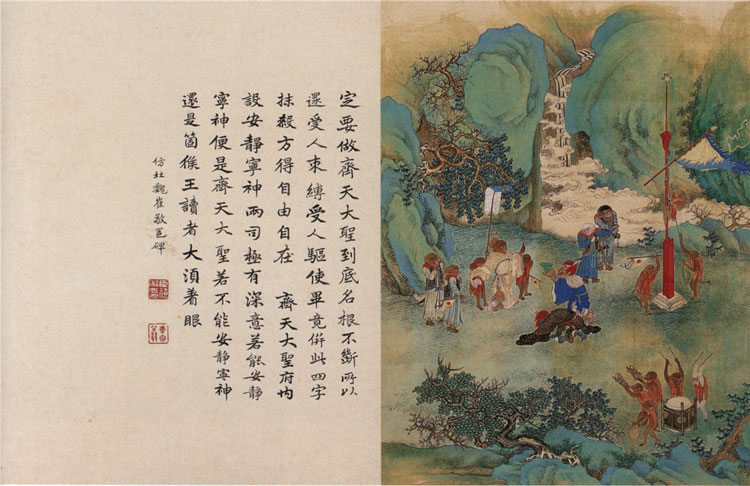 定要做齊天大聖到底名根不斷所以
還受人束縛受人驅使畢竟併此四字
抹殺方得自由自在 齊天大聖府內
設安靜寧神兩司極有深意若能安靜
寧神便是齊天大聖若不能安靜寧神
還是箇猴王讀者大須着眼
仿北魏崔敬邕碑